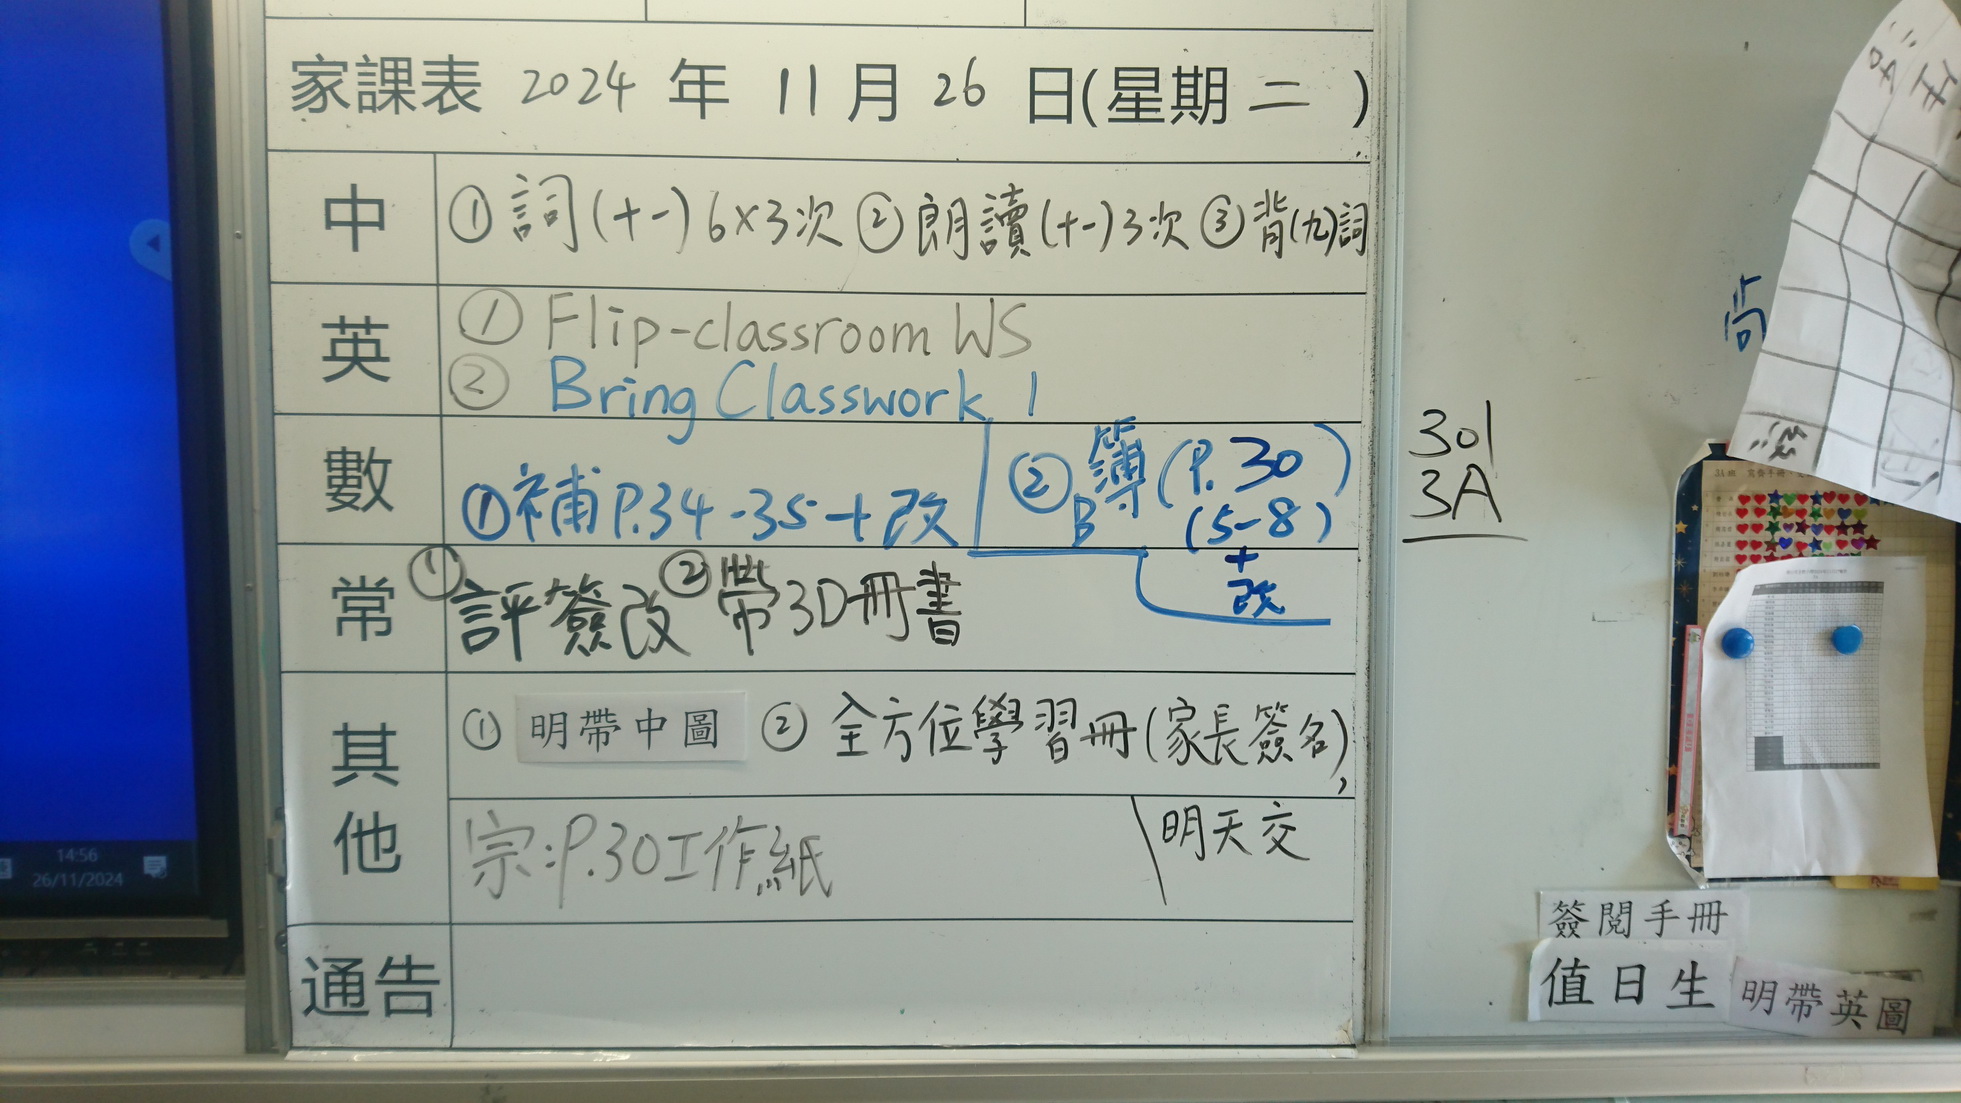 家課表 2024 年 11 月 26 日(星期 二 )
中 ① 詞(十一) 6×3次 ② 朗讀(十一)3次 ③ 背(九)詞
英 ① Flip-classroom WS
② Bring Classwork 1
數 ① 補P.34-35+改 ② 簿B (P.30)
(5-8)
+
改
常 ① 評簽改 ② 帶3D冊書
其他 ① 明帶中圖 ② 全方位學習冊(家長簽名),
明天交
宗:P.30工作紙
通告
301
3A
尚
簽閱手冊
值日生
明帶英圖
14:56
26/11/2024